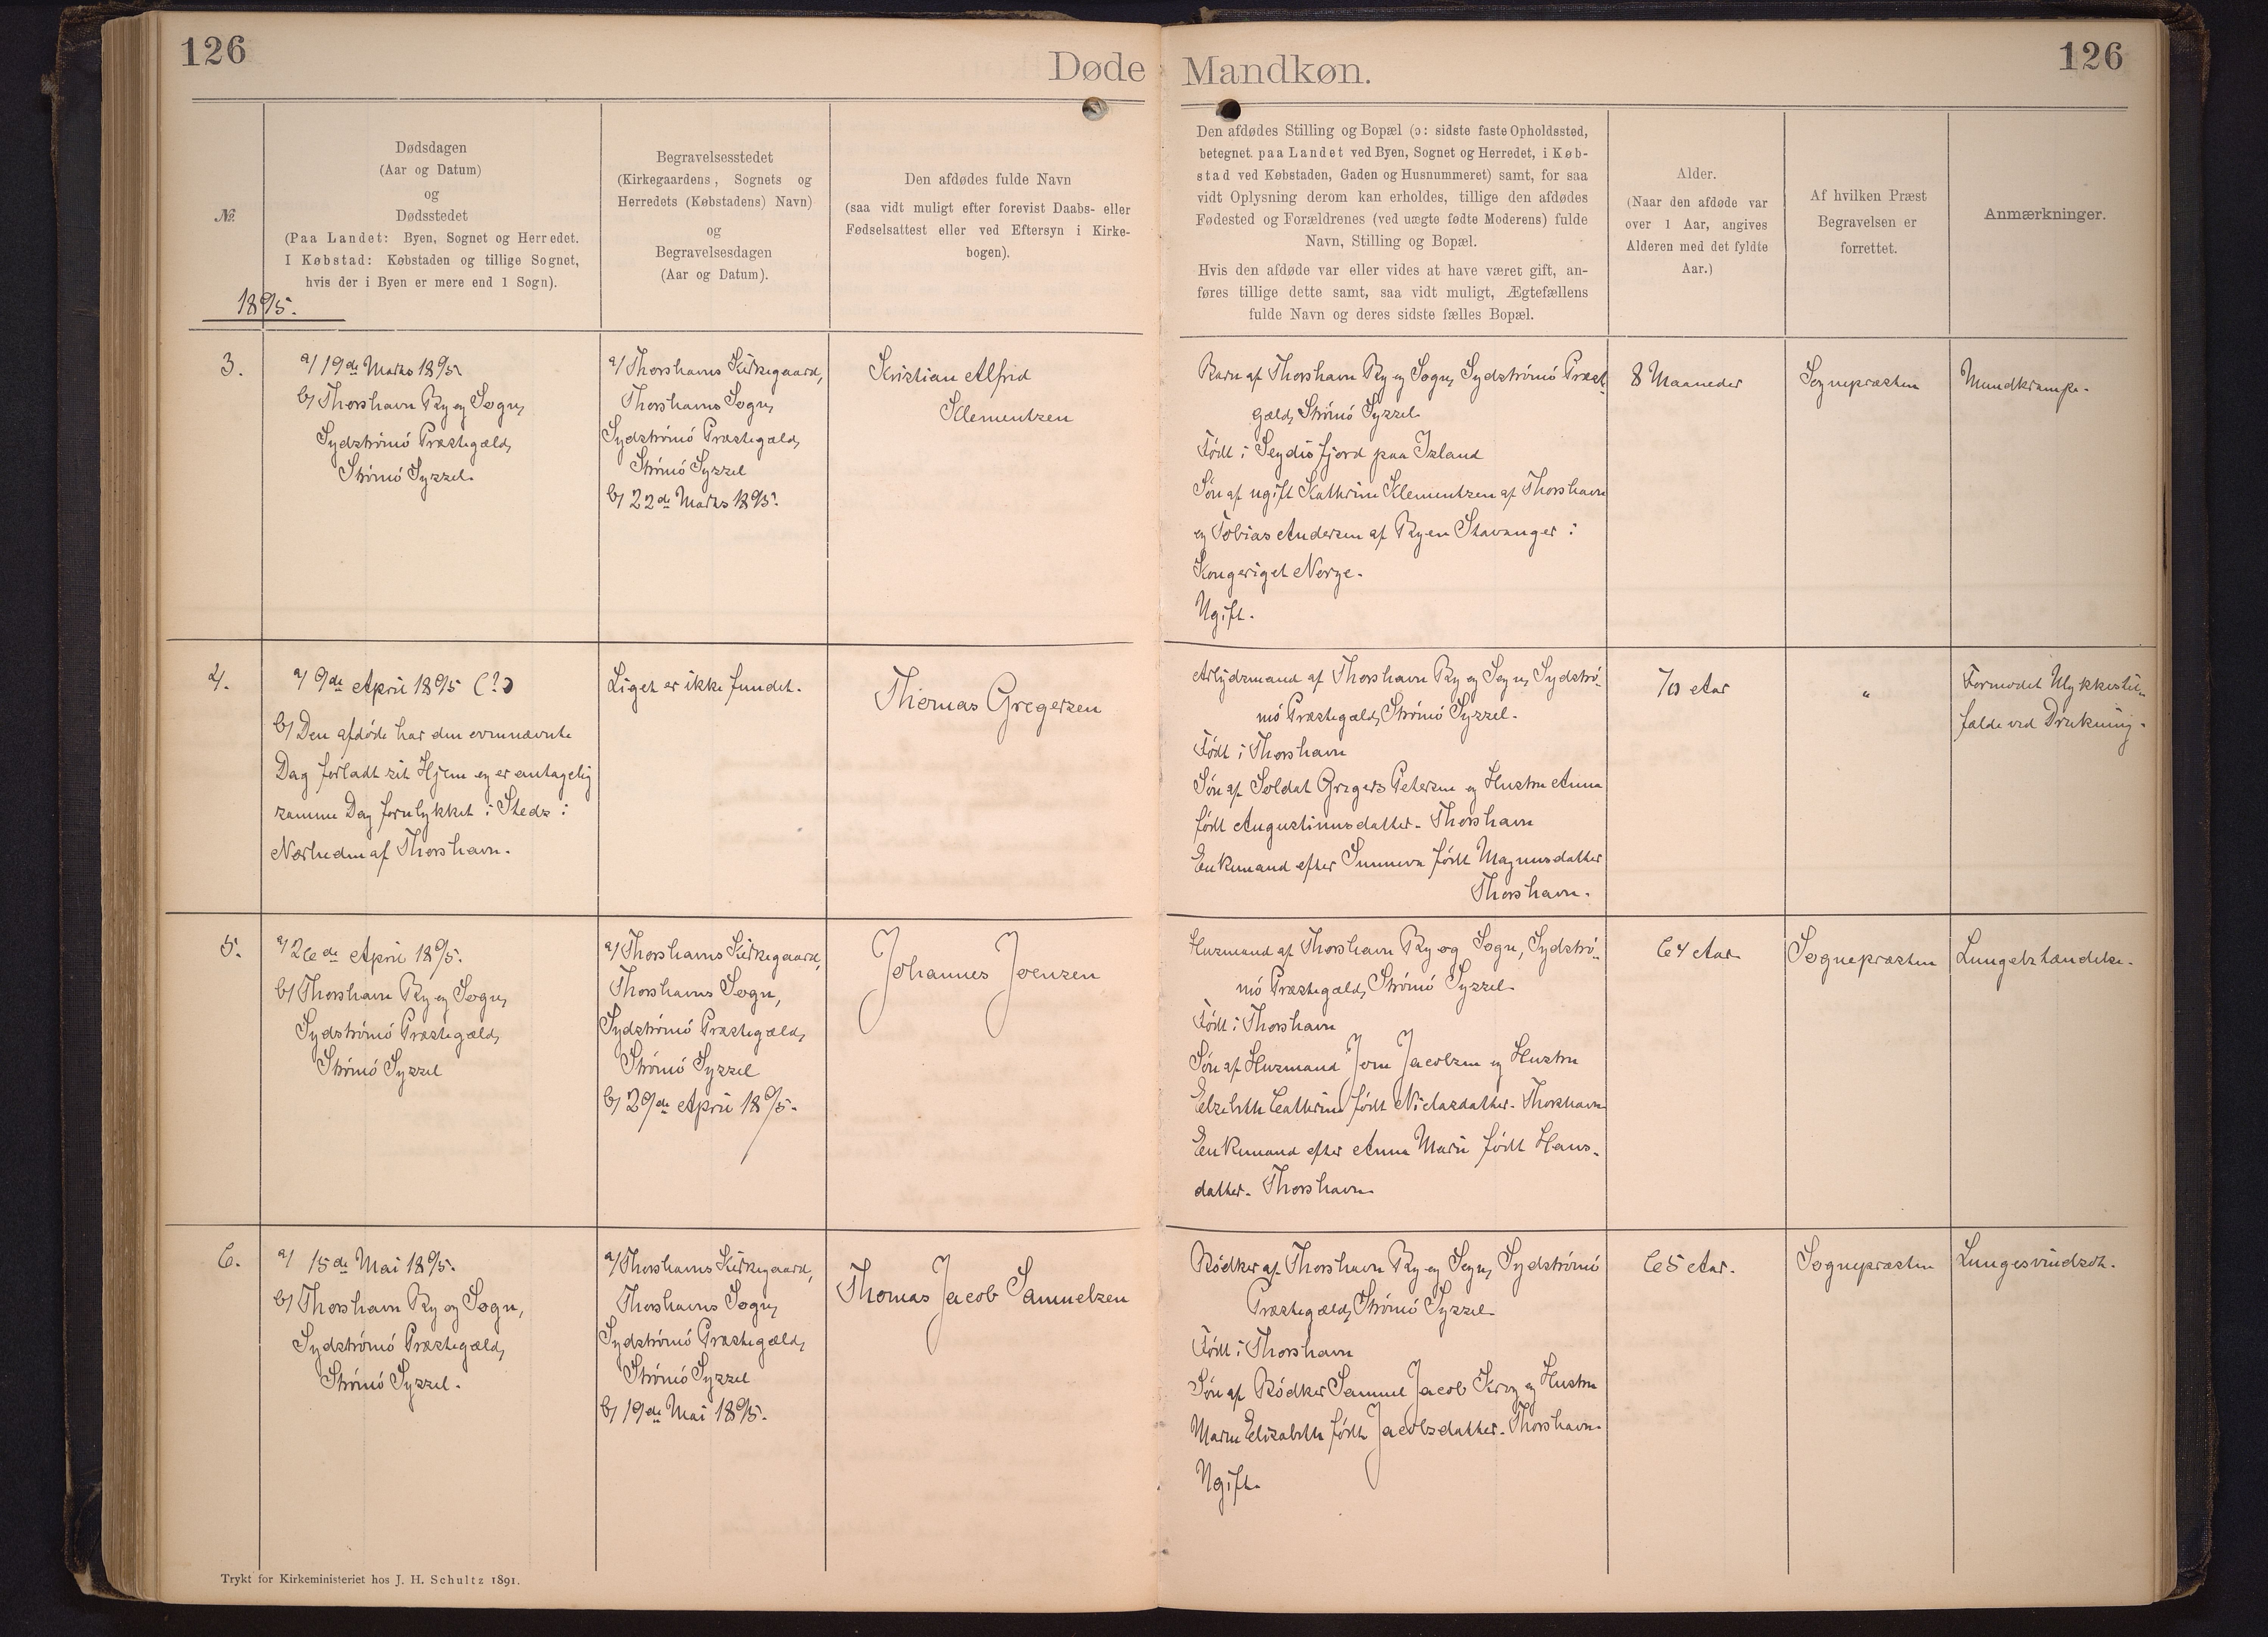 126
Døde
Mandkøn.
126
№
Dødsdagen
(Aar og Datum)
og
Dødsstedet
(Paa Landet: Byen, Sognet og Herredet.
I Købstad: Købstaden og tillige Sognet,
hvis der i Byen er mere end 1 Sogn).
Begravelsesstedet
(Kirkegaardens, Sognets og
Herredets (Købstadens) Navn)
og
Begravelsesdagen
(Aar og Datum).
Den afdødes fulde Navn
(saa vidt muligt efter forevist Daabs- eller
Fødselsattest eller ved Eftersyn i Kirke-
bogen).
Den afdødes Stilling og Bopæl (ɔ: sidste faste Opholdssted,
betegnet paa Landet ved Byen, Sognet og Herredet, i Køb-
stad ved Købstaden, Gaden og Husnummeret) samt, for saa
vidt Oplysning derom kan erholdes, tillige den afdødes
Fødested og Forældrenes (ved uægte fødte Moderens) fulde
Navn, Stilling og Bopæl.
Hvis den afdøde var eller vides at have været gift, an-
føres tillige dette samt, saa vidt muligt, Ægtefællens
fulde Navn og deres sidste fælles Bopæl.
Alder.
(Naar den afdøde var
over 1 Aar, angives
Alderen med det fyldte
Aar.)
Af hvilken Præst
Begravelsen er
forrettet.
Anmærkninger.
1895.
3.
a/ 19de Marts 1895.
b/ Thorshavn By og Sogn,
Sydströmö Præstegæld,
Strömö Syssel.
a/ Thorshavns Kirkegaard,
Thorshavns Sogn,
Sydströmö Præstegæld,
Strömö Syssel
b/ 22de Marts 1895.
Kristian Alfred
Klementsen
Barn af Thorshavn By og Sogn, Sydströmö Præst-
gæld, Strömö Syssel.
Födt i Seydisfjord paa Island
Søn af ugift Kathrine Klementsen af Thorshavn
og Tobias Andersen af Byen Stavanger i
Kongeriget Norge.
Ugift.
8 Maaneder
Sognepræsten
Mundkrampe.
4.
a/ 9de April 1895 (?)
b/ Den afdøde har den ovennævnte
Dag forladt sit Hjem og er antagelig
samme Dag forulykket i Steds i
Nærheden af Thorshavn.
Liget er ikke fundet.
Thomas Gregersen
Arbejdsmand af Thorshavn By og Sogn, Sydströ-
mö Præstegæld, Strömö Syssel.
Födt i Thorshavn
Søn af Soldat Gregers Petersen og Hustru Anna
födt Augustinusdatter. Thorshavn
Enkemand efter Sunneva födt Magnusdatter
Thorshavn.
70 Aar
"
Formodet Ulykkestil-
fælde ved Drukning.
5.
a/ 26de April 1895.
b/ Thorshavn By og Sogn,
Sydströmö Præstegæld,
Strömö Syssel
a/ Thorshavns Kirkegaard,
Thorshavns Sogn,
Sydströmö Præstegæld,
Strömö Syssel
b/ 29de April 1895.
Johannes Joensen
Husmand af Thorshavn By og Sogn, Sydströ-
mö Præstegæld, Strömö Syssel.
Födt i Thorshavn
Søn af Husmand Joen Jacobsen og Hustru
Elsebeth Cathrine födt Niclasdatter. Thorshavn
Enkemand efter Anna Marie födt Hans-
datter. Thorshavn.
64 Aar
Sognepræsten
Lungebetændelse.
6.
a/ 15de Mai 1895.
b/ Thorshavn By og Sogn,
Sydströmö Præstegæld,
Strömö Syssel.
a/ Thorshavns Kirkegaard,
Thorshavns Sogn,
Sydströmö Præstegæld,
Strömö Syssel
b/ 19de Mai 1895.
Thomas Jacob Samuelsen
Bödker af Thorshavn By og Sogn, Sydströmö
Præstegæld, Strömö Syssel
Födt i Thorshavn
Søn af Bödker Samuel Jacob Krog og Hustru
Maren Elisabeth födt Jacobsdatter. Thorshavn.
Ugift.
65 Aar.
Sognepræsten
Lungesvindsot.
Trykt for Kirkeministeriet hos J. H. Schultz 1891.